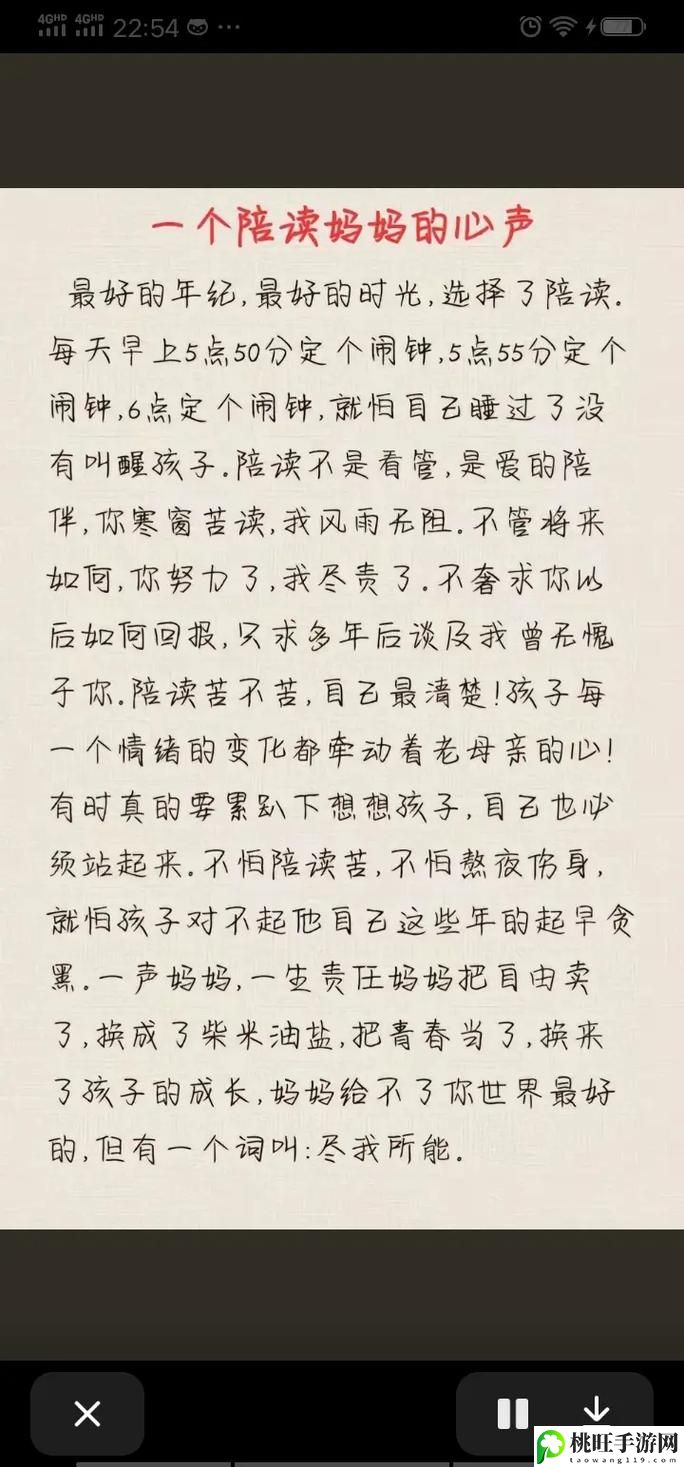 4GHD 4GHD 22:54 ...
一个陪读妈妈的心声
最好的年纪,最好的时光,选择了陪读.
每天早上5点50分定个闹钟,5点55分定个
闹钟,6点定个闹钟,就怕自己睡过了没
有叫醒孩子.陪读不是看管,是爱的陪
伴,你寒窗苦读,我风雨无阻.不管将来
如何,你努力了,我尽责了.不奢求你以
后如何回报,只求多年后谈及我曾无愧
于你.陪读苦不苦,自己最清楚!孩子每
一个情绪的变化都牵动着老母亲的心!
有时真的要累趴下想想孩子,自己也必
须站起来.不怕陪读苦,不怕熬夜伤身,
就怕孩子对不起他自己这些年的起早贪
黑.一声妈妈,一生责任妈妈把自由卖
了,换成了柴米油盐,把青春当了,换来
了孩子的成长,妈妈给不了你世界最好
的,但有一个词叫:尽我所能.
桃旺手游网
taowang119.com